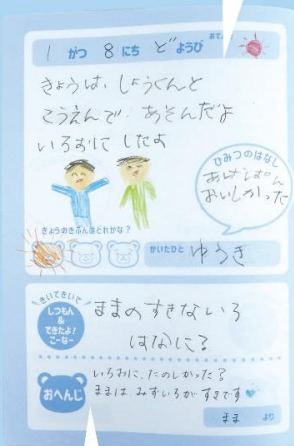 おてんき
1 がつ 8 にち ど ようび
きょうは、しょうくんと
こうえんで、あそんだよ
いろおに したよ
ひみつのはなし
あげぱん
おいしかった
きょうのきぶんはどれかな？
かいたひと ゆうき
きいてきいて
しつもん
&
できたよ!
こーなー
ままのすきないろ
はなに？
おへんじ
いろおに、たのしかった？
ままは みずいろがすきです
まま より